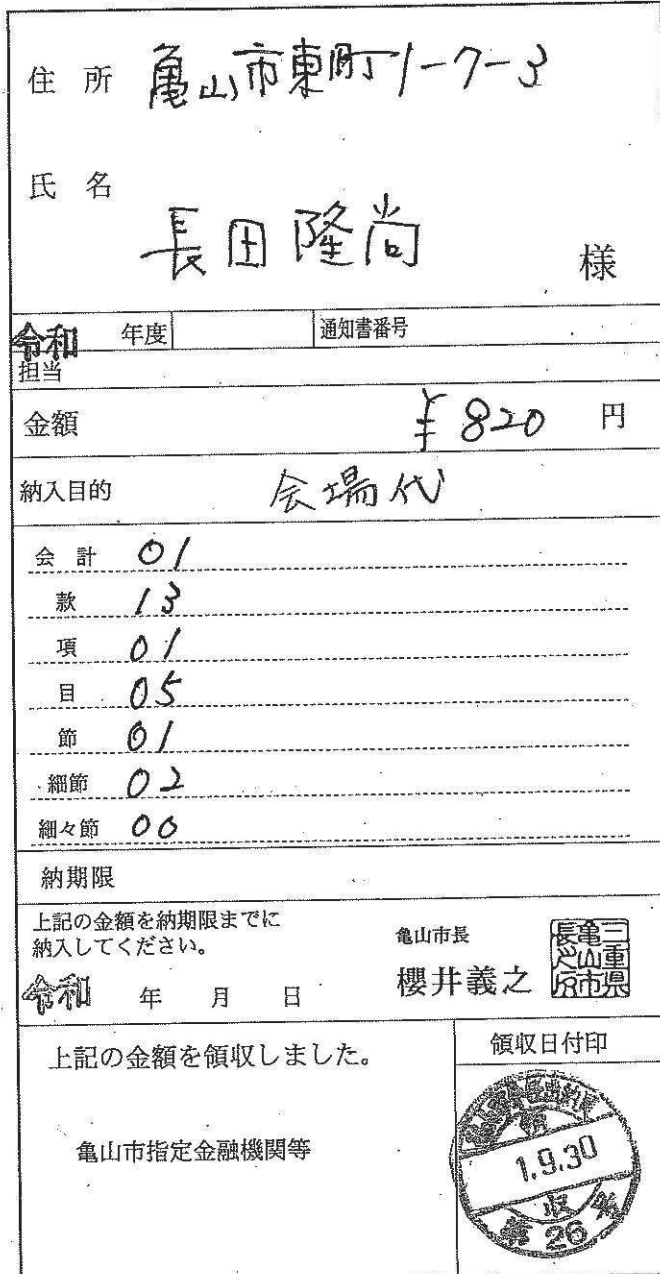 住所 亀山市東町1-7-3
氏名
長田隆尚 様
令和 年度 通知書番号
担当
金額 ¥820 円
納入目的 会場代
会計 01
款 13
項 01
目 05
節 01
細節 02
細々節 00
納期限
上記の金額を納期限までに
納入してください。
亀山市長
櫻井義之
三重県
亀山市
長之印
令和 年 月 日
上記の金額を領収しました。
領収日付印
亀山市指定金融機関等
領
1.9.30
収
第26号